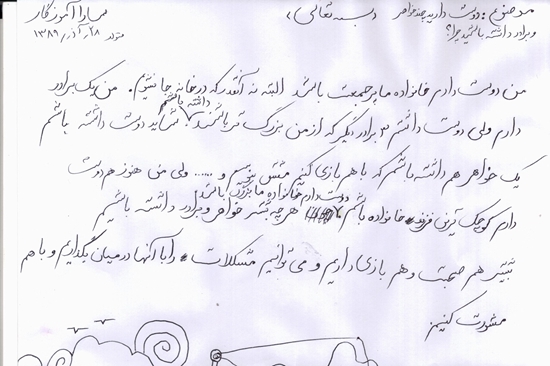 سارا آموزگار
متولد ۲۸ آذر ۱۳۸۹
(بسمه تعالی)
موضوع: دوست دارید چند خواهر
و برادر داشته باشید چرا؟
من دوست دارم خانواده ما پرجمعیت باشد البته نه آنقدر که در خانه جا نشویم. من یک برادر
دارم ولی دوست داشتم ۳ برادر دیگر که از من بزرگ تر باشند داشته باشم. شاید دوست داشته باشم
یک خواهر هم داشته باشم که با هم بازی کنیم مشق بنویسیم و ...... ولی من هنوز هم دوست
دارم کوچک ترین فرزند خانواده باشم دوست دارم خانواده ما بزرگ باشد هر چه بیشتر خواهر و برادر داشته باشیم
بیشتر هم صحبت و هم بازی داریم و می توانیم مشکلات را با آنها در میان بگذاریم و با هم
مشورت کنیم